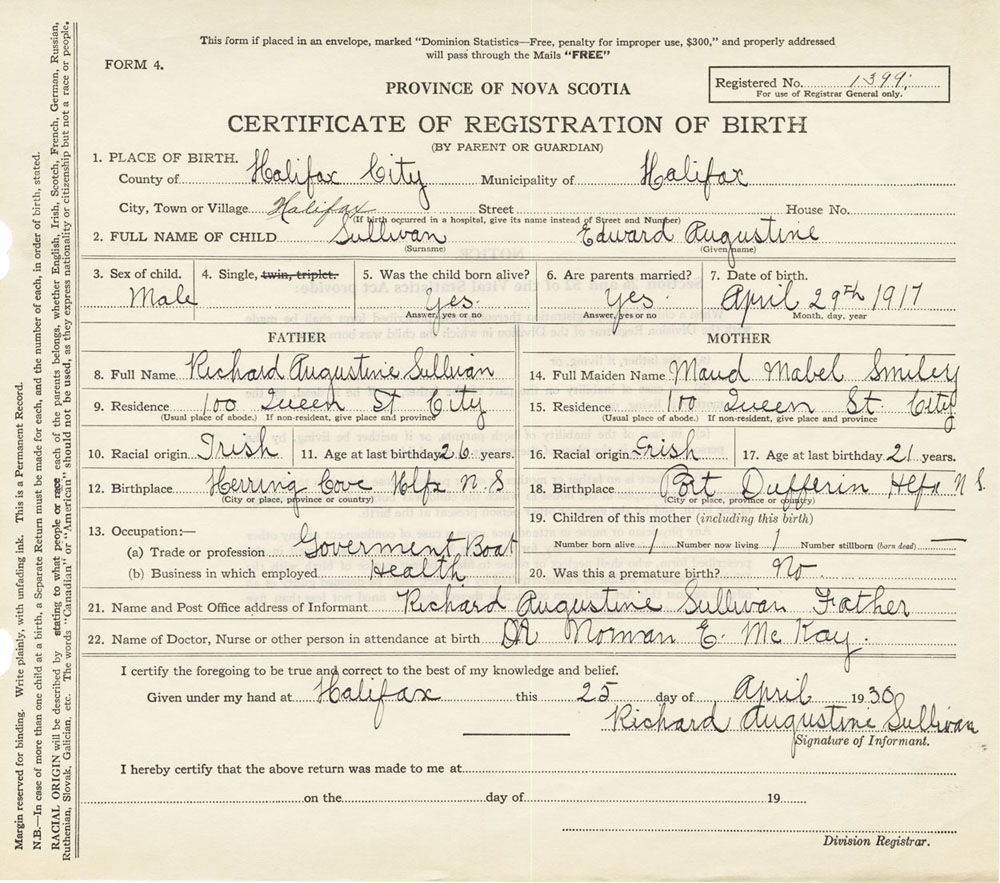 This form if placed in an envelope, marked "Dominion Statistics—Free, penalty for improper use, $300," and properly addressed
will pass through the Mails "FREE"
FORM 4.
Registered No. 1399.
For use of Registrar General only.
PROVINCE OF NOVA SCOTIA
CERTIFICATE OF REGISTRATION OF BIRTH
(BY PARENT OR GUARDIAN)
1. PLACE OF BIRTH.
County of Halifax City Municipality of Halifax
City, Town or Village Halifax Street House No.
(If birth occurred in a hospital, give its name instead of Street and Number)
2. FULL NAME OF CHILD Sullivan Edward Augustine
(Surname) (Given name)
3. Sex of child. 4. Single, twin, triplet. 5. Was the child born alive? 6. Are parents married? 7. Date of birth.
Male Yes. Yes. April 29th 1917
Answer, yes or no Answer, yes or no Month, day, year
FATHER MOTHER
8. Full Name Richard Augustine Sullivan 14. Full Maiden Name Maud Mabel Smiley
9. Residence 100 Queen St City 15. Residence 100 Queen St. City
(Usual place of abode.) If non-resident, give place and province (Usual place of abode.) If non-resident, give place and province
10. Racial origin Irish 11. Age at last birthday 26 years. 16. Racial origin Irish 17. Age at last birthday 21 years.
12. Birthplace Herring Cove Hlfx N.S 18. Birthplace Port Dufferin Hlfx N S.
(City or place, province or country) (City or place, province or country)
19. Children of this mother (including this birth)
13. Occupation:—
(a) Trade or profession Goverment Boat Number born alive 1 Number now living 1 Number stillborn (born dead) —
(b) Business in which employed Health 20. Was this a premature birth? No.
21. Name and Post Office address of Informant Richard Augustine Sullivan Father
22. Name of Doctor, Nurse or other person in attendance at birth DR Norman E. McKay.
I certify the foregoing to be true and correct to the best of my knowledge and belief.
Given under my hand at Halifax this 25 day of April 1930
Richard Augustine Sullivan
Signature of Informant.
I hereby certify that the above return was made to me at
on the day of 19
Division Registrar.
Margin reserved for binding. Write plainly, with unfading ink. This is a Permanent Record.
N.B.—In case of more than one child at a birth, a Separate Return must be made for each, and the number of each, in order of birth, stated.
RACIAL ORIGIN will be described by stating to what people or race each of the parents belongs, whether English, Irish, Scotch, French, German, Russian,
Ruthenian, Slovak, Galician, etc. The words "Canadian" or "American" should not be used, as they express nationality or citizenship but not a race or people.